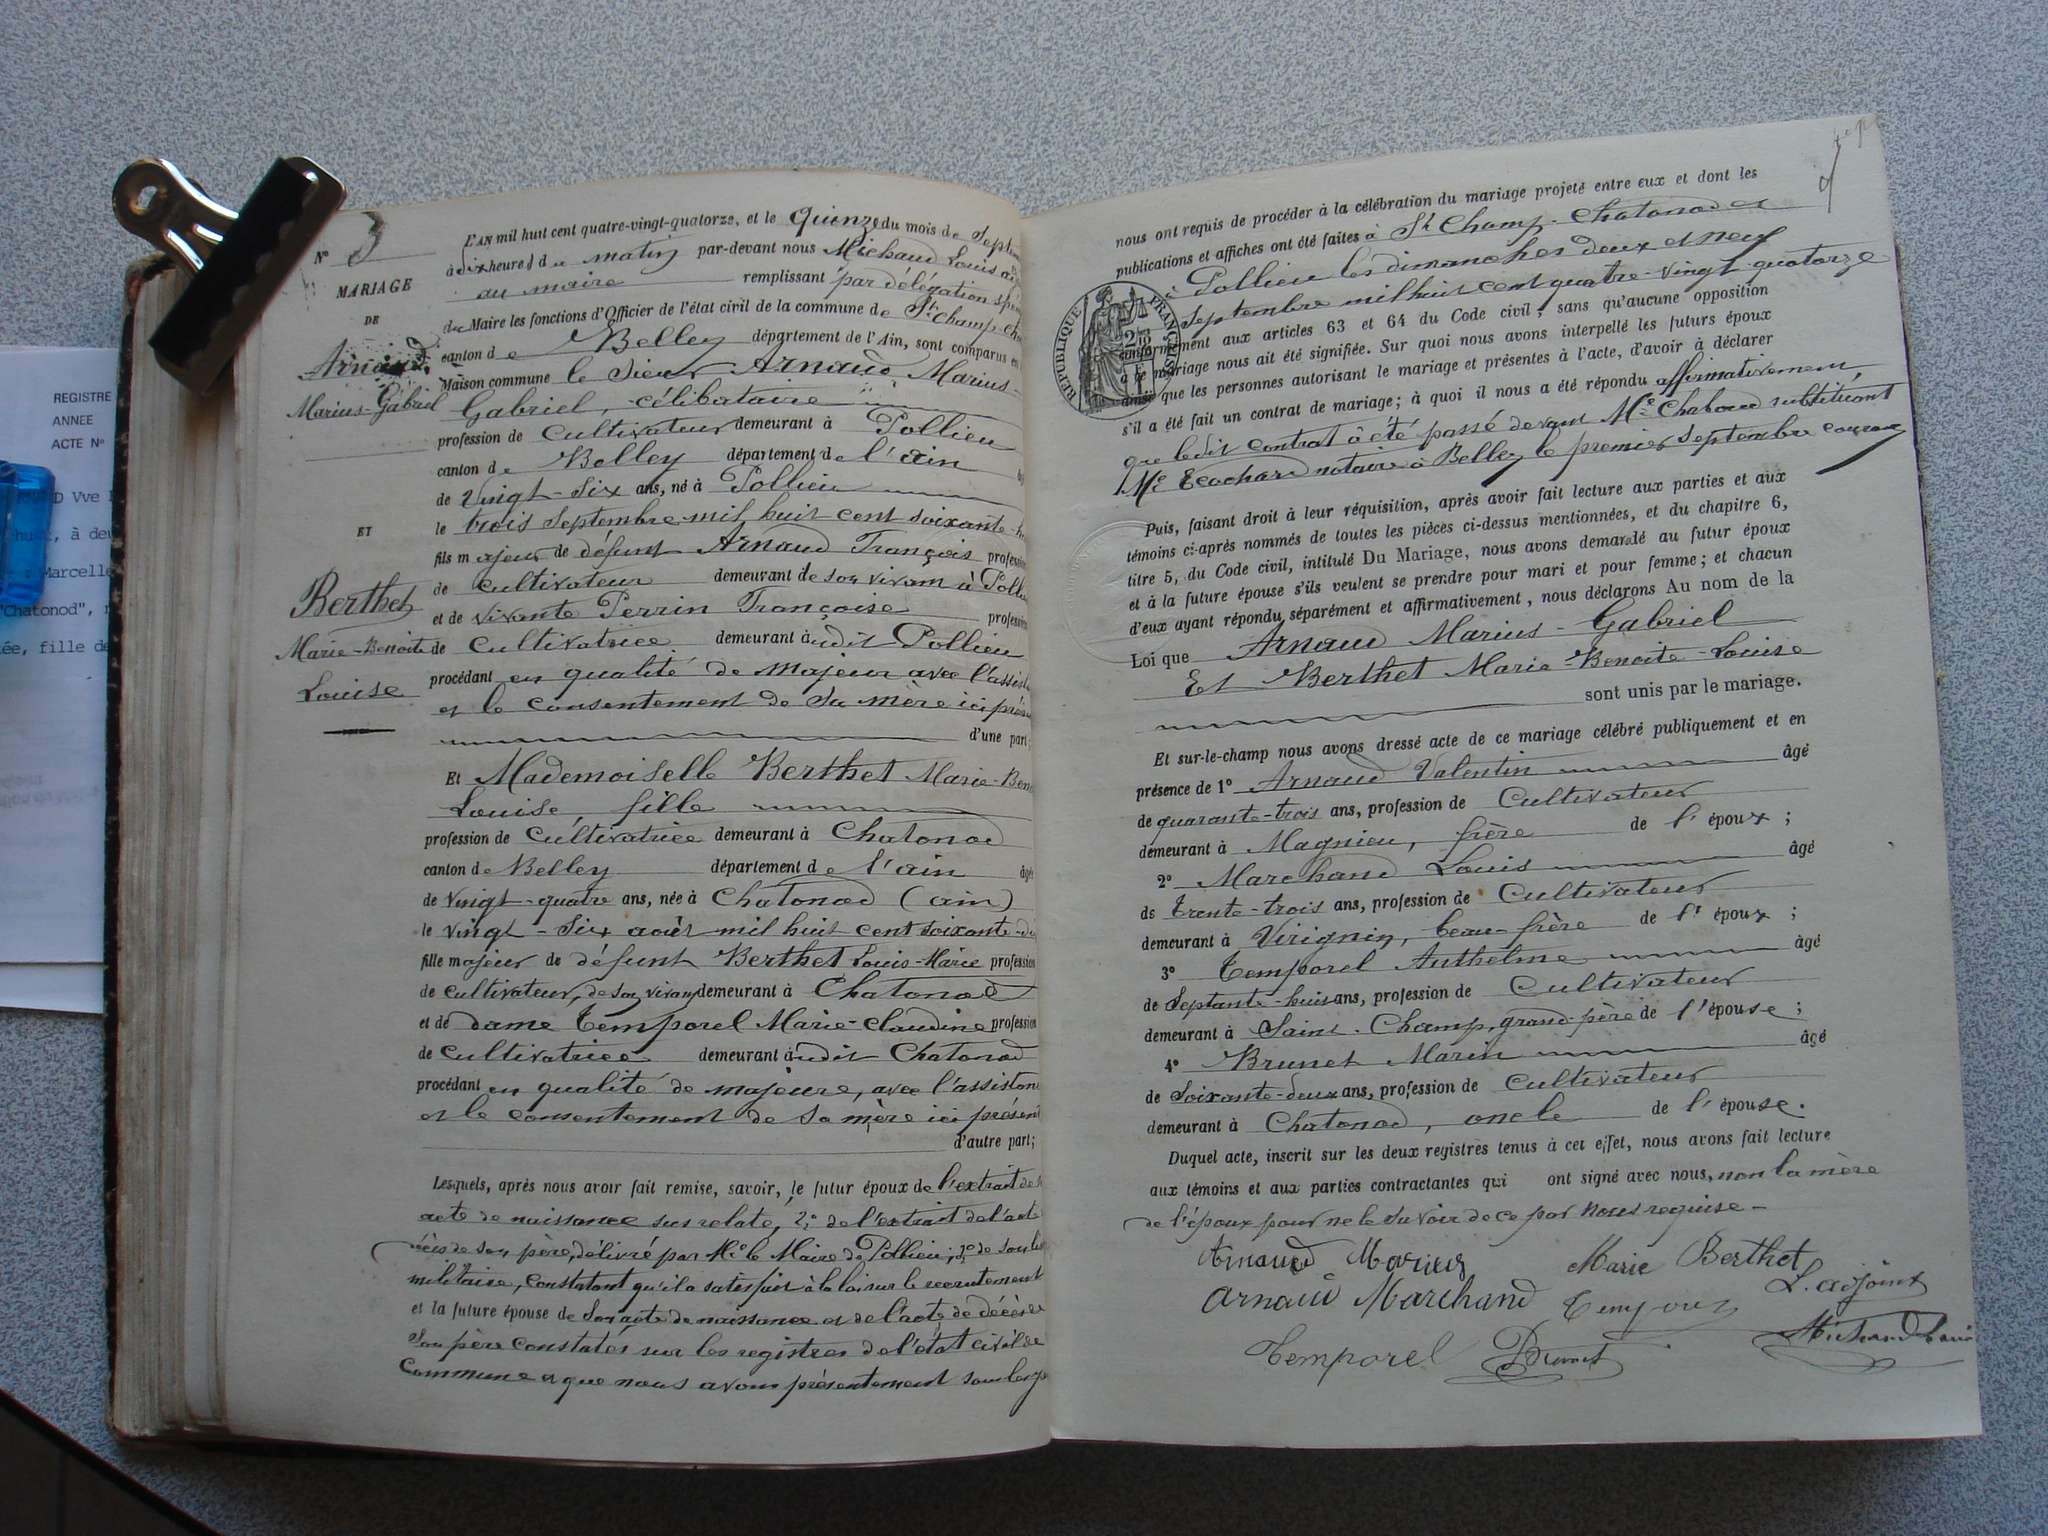 N° 3
MARIAGE
DE
Arnaud
Marius-Gabriel
ET
Berthet
Marie-Benoite
Louise
L'AN mil huit cent quatre-vingt-quatorze, et le quinze du mois de Septem
à dix heures du matin par-devant nous Michaud Louis adj
au maire remplissant par délégation spé
du Maire les fonctions d'Officier de l'état civil de la commune de St. Champ-Cha
canton de Belley département de l'Ain, sont comparus en
Maison commune le Sieur Arnaud, Marius-
Gabriel, célibataire
profession de cultivateur demeurant à Pollieu
canton de Belley département de l'ain âgé
de vingt-six ans, né à Pollieu
le trois Septembre mil huit cent soixante-hu
fils majeur de défunt Arnaud François profession
de cultivateur demeurant de son vivant à Pollie
et de vivante Perrin Françoise profession
de cultivatrice demeurant à udit Pollieu
procédant en qualité de majeur avec l'assist
et le consentement de sa mère ici prés
d'une part;
Et Mademoiselle Berthet Marie-Beno
Louise, fille
profession de cultivatrice demeurant à Chatonod
canton de Belley département de l'ain âgée
de vingt-quatre ans, née à Chatonod (ain)
le vingt-six août mil huit cent soixante-di
fille majeur de défunt Berthet Louis-Marie profession
de cultivateur, de son vivant demeurant à Chatonod
et de dame Temporel Marie-Claudine profession
de cultivatrice demeurant à udit Chatonod
procédant en qualité de majeure, avec l'assistan
et le consentement de sa mère ici présent
d'autre part;
Lesquels, après nous avoir fait remise, savoir, le futur époux de l'extrait de s
acte de naissance sus relaté, 2° de l'extrait de l'acte
décès de son père, délivré par Mr le Maire de Pollieu; 3° de son liv
militaire, constatant qu'il a satisfait à la loi sur le recrutement
et la future épouse de son acte de naissance et de l'acte de décès de
son père constatés sur les registres de l'état civil de
commune et que nous avons présentement sous les y
nous ont requis de procéder à la célébration du mariage projeté entre eux et dont les
publications et affiches ont été faites à St Champ-Chatonod et
à Pollieu les dimanches deux et neuf
septembre mil huit cent quatre-vingt-quatorze
conformément aux articles 63 et 64 du Code civil; sans qu'aucune opposition
à ce mariage nous ait été signifiée. Sur quoi nous avons interpellé les futurs époux
ainsi que les personnes autorisant le mariage et présentes à l'acte, d'avoir à déclarer
s'il a été fait un contrat de mariage; à quoi il nous a été répondu affirmativement,
que le dit contrat a été passé devant Me Chaboud substituant
Me Ecochard notaire à Belley le premier septembre courant
RÉPUBLIQUE FRANÇAISE
Puis, faisant droit à leur réquisition, après avoir fait lecture aux parties et aux
témoins ci-après nommés de toutes les pièces ci-dessus mentionnées, et du chapitre 6,
titre 5, du Code civil, intitulé Du Mariage, nous avons demandé au futur époux
et à la future épouse s'ils veulent se prendre pour mari et pour femme; et chacun
d'eux ayant répondu séparément et affirmativement, nous déclarons Au nom de la
Loi que Arnaud Marius-Gabriel
Et Berthet Marie-Benoite-Louise
sont unis par le mariage.
Et sur-le-champ nous avons dressé acte de ce mariage célébré publiquement et en
présence de 1° Arnaud Valentin âgé
de quarante-trois ans, profession de cultivateur
demeurant à Magnieu, frère de l'époux;
2° Marchand Louis âgé
de trente-trois ans, profession de cultivateur
demeurant à Virignin, beau-frère de l'époux;
3° Temporel Anthelme âgé
de septante-huit ans, profession de cultivateur
demeurant à Saint-Champ, grand-père de l'épouse;
4° Brunet Marin âgé
de soixante-deux ans, profession de cultivateur
demeurant à Chatonod, oncle de l'épouse.
Duquel acte, inscrit sur les deux registres tenus à cet effet, nous avons fait lecture
aux témoins et aux parties contractantes qui ont signé avec nous, non la mère
de l'époux pour ne le savoir de ce par nous requise-
Arnaud Marius Marie Berthet
Arnaud Marchand L. adjoint
Temporel Brunet Michaud Louis
REGISTRE
ANNEE
ACTE N°
D Vve
huit, à deu
Marcelle
"Chatonod",
ée, fille de